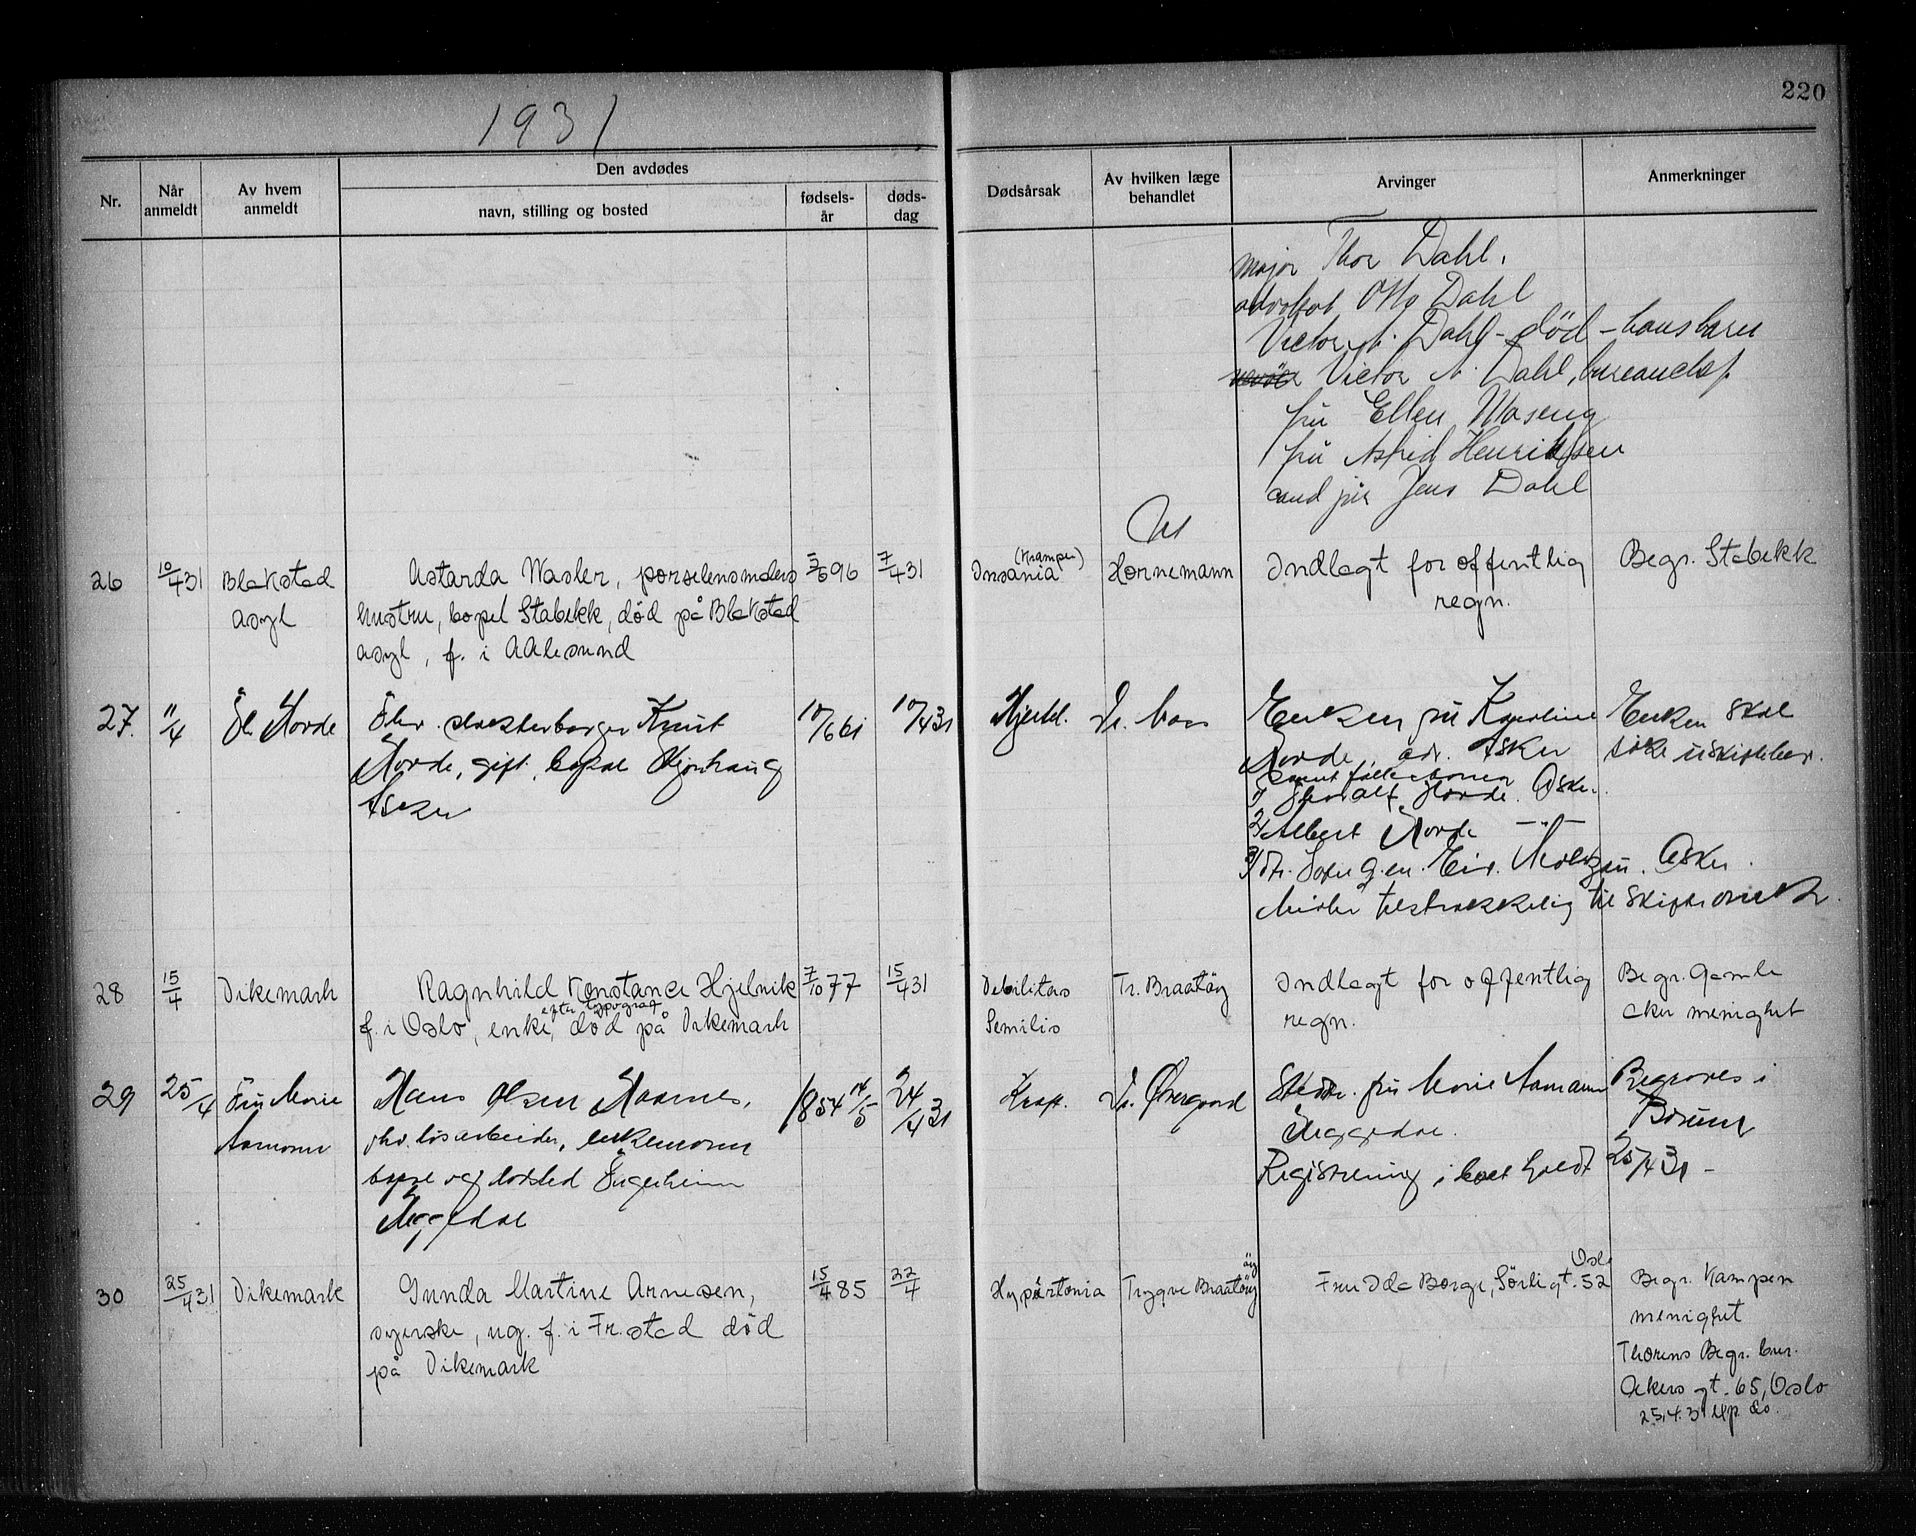 220
1931
Nr.
Når anmeldt
Av hvem anmeldt
Den avdødes
navn, stilling og bosted
fødsels-år
døds-dag
Dødsårsak
Av hvilken læge behandlet
Arvinger
Anmerkninger
major Thor Dahl.
advokat Otto Dahl
Victor A. Dahl - död - hans barn
Victor A. Dahl, bureauchef
fru Ellen Maseng
fru Astrid Henriksen
cand jur Jens Dahl
26
10/4 31
Blakstad
asyl
Astarda Wasler, porselensmalers
hustru, bopel Stabekk, död på Blakstad
asyl, f. i Aalesund
96
7/4 31
(Kramper)
Insania
Hornemann
Indlagt for offentlig
regn.
Begr. Stabekk
27.
11/4
Horde
Knut
Horde, gift, bopæl
Asker
10/6 61
10/4 31
Hjertel.
Dr.
Enken fru Karoline
Horde, adr. Asker
samt fælles barn
1/ Horde. Asker.
2/ Albert Horde —"—
3/ Asker.
Midler tilstrækkelig til
Enken skal
söke uskiftebev.
28
15/4
Dikemark
Ragnhild Konstance Hjelvik
efter typograf
f. i Oslo, enke, död på Dikemark
7/10 77
15/4 31
Debilitas
Semilis
Tr. Braatöy
Indlagt for offentlig
regn.
Begr. Gamle
Aker menighet
29
25/4
Fru Marie
Aamann
Hans Olsen
fhv. løsarbeider, enkemann
bopæl og dødsted
Heggedal
1854 14/5
24/4 31
Kraft.
Dr. Øvergaard
fru Marie Aamann
Heggedal.
Registrering i boet holdt
Begraves i
Bærum
25/4 31 -
30
25/4 31
Dikemark
Gunda Martine Arnesen,
syerske, ug. f. i Fr.stad död
på Dikemark
15/4 85
22/4
Hypärtonia
Trygve Braatöy
Oslo
Fru Ida Borge, Sörligt. 52
Begr. Kampen
menighet
Thorens Begr. bur.
Akers gt. 65, Oslo
25.4.31